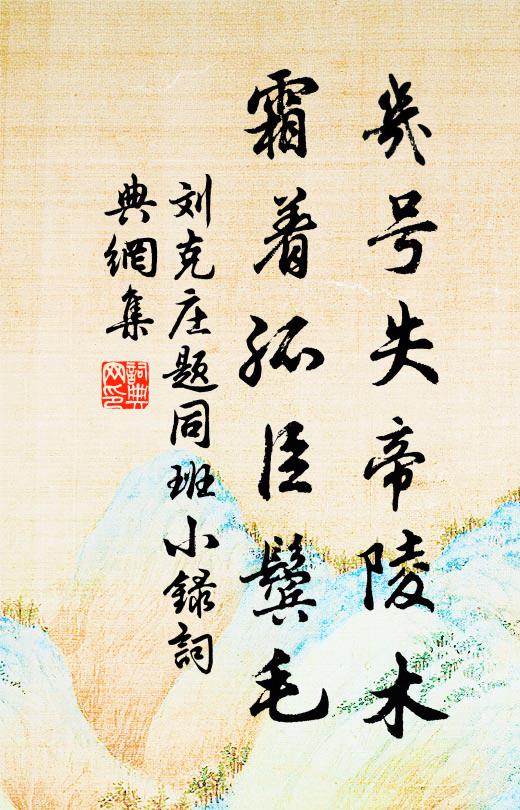 幾号失帝陵木
霜着孤臣鬓毛
刘克庄题同班小録詞
典網集
詞典
网印